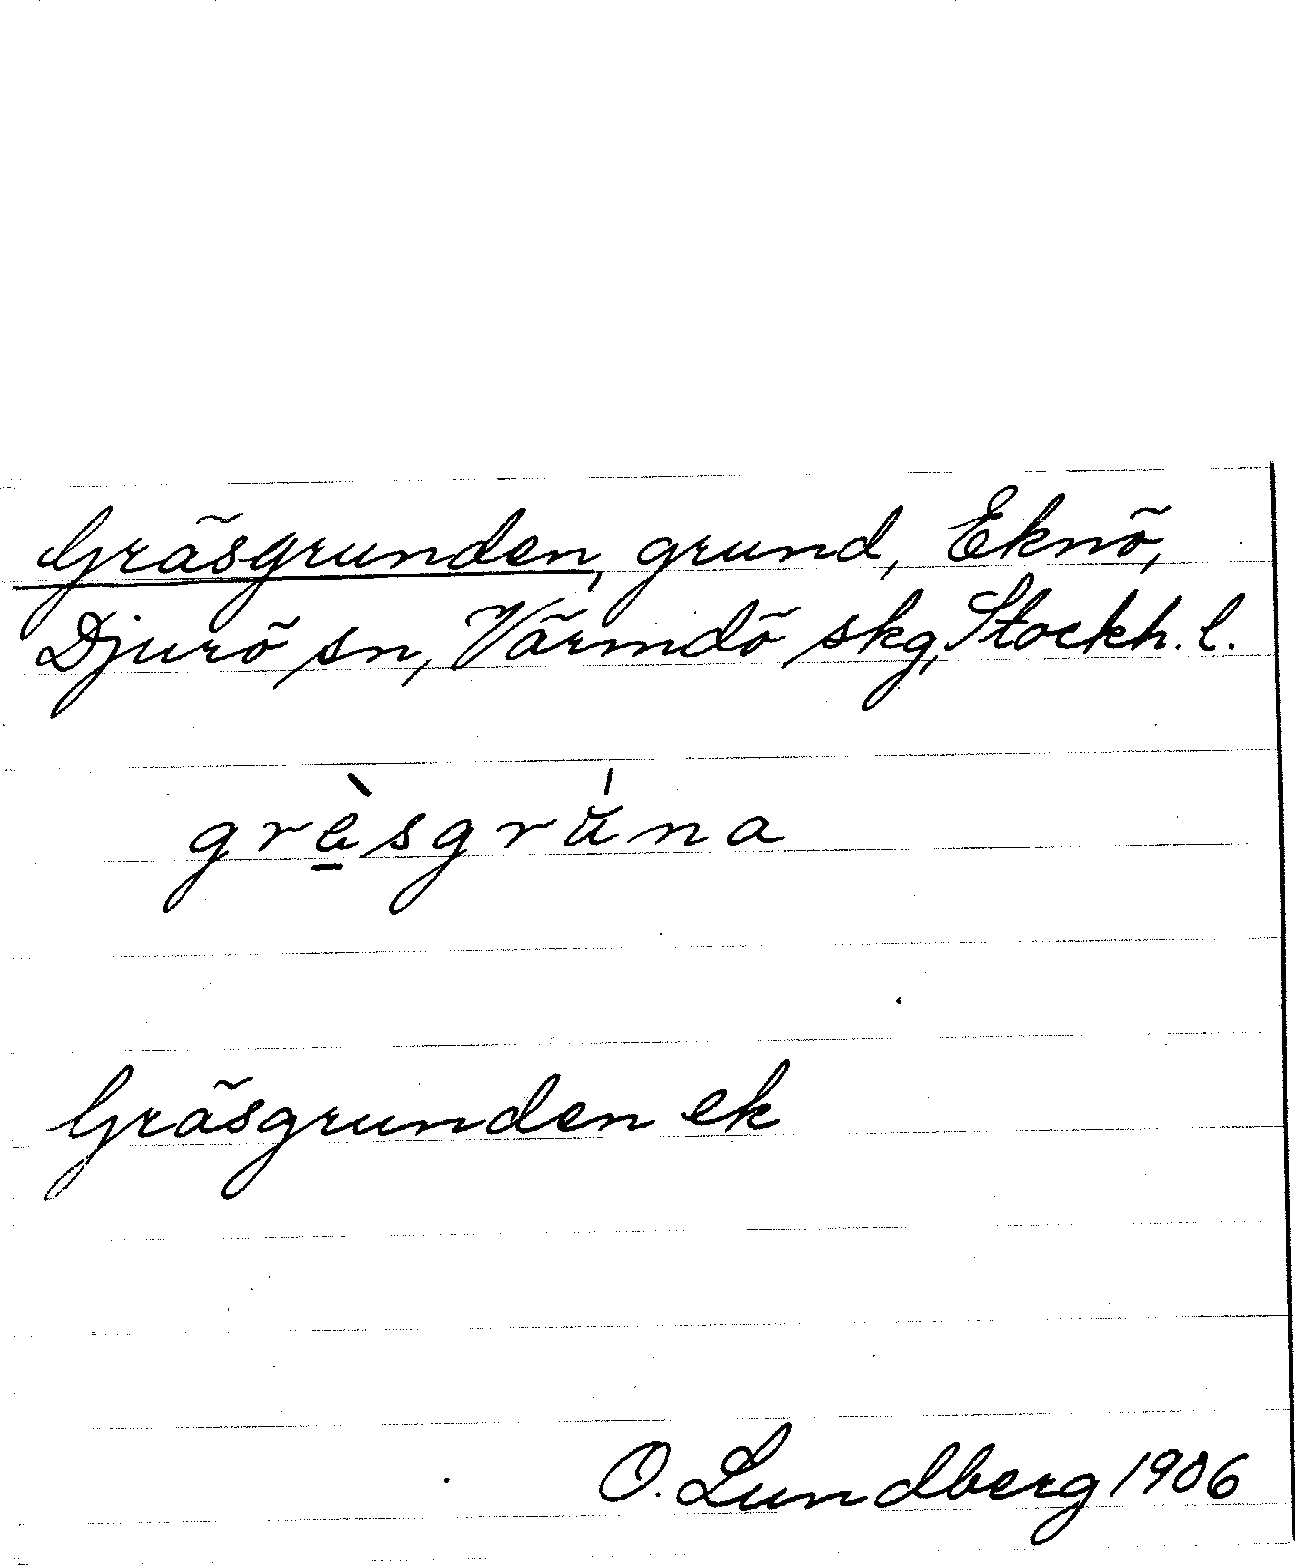 Gräsgrunden, grund, Eknö,
Djurö sn, Värmdö skg, Stockh. l.
grè̠sgrú̆na
Gräsgrunden ek
O. Lundberg 1906